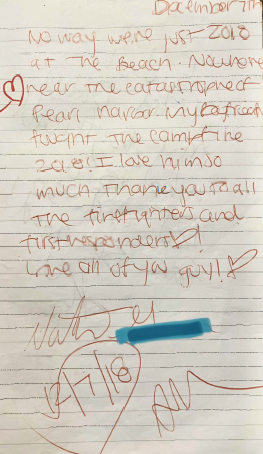 December 7th
No way were just 2018
at The Beach. Nowhere
near the catastrophe of
Pearl Harbor. My
fought The campfire
2018! I love him so
much. Thank you to all
The firefighters and
first responders!
Love all of you guy!
12/7/18